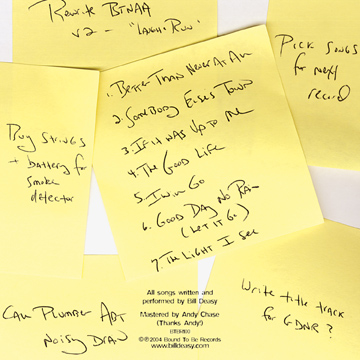 Rewrite BTNAA
v2 - "Laugh + Run"
Pick songs
for next
record
1. Better Than Never At All
2. Somebody Elses Town
3. If it was up to me
4. The Good Life
5. I Will Go
6. Good Day No Rain
(Let it Go)
7. The Light I See
Buy strings
+ battery for
smoke
detector
Call Plumber ADT
Noisy Drain
Write title track
for GDNR?
All songs written and
performed by Bill Deasy
Mastered by Andy Chase
(Thanks Andy!)
BTBR
℗©2004 Bound To Be Records
www.billdeasy.com